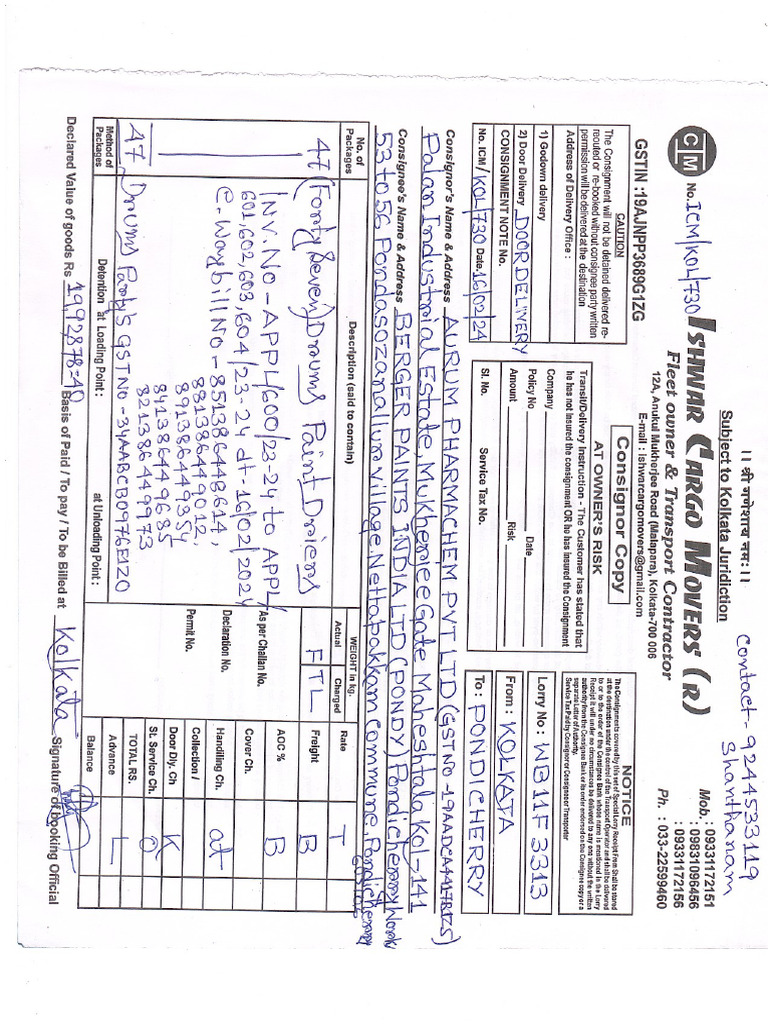 ।। श्री गणेशाय नमः ।।
Subject to Kolkata Juridiction
Contact - 9244533119
Shanthanam
CM
No. ICM/KOL/730
ISHWAR CARGO MOVERS (R)
Fleet owner & Transport Contractor
12A, Anukul Mukherjee Road (Malapara), Kolkata-700 006
E-mail : Ishwarcargomovers@gmail.com
Mob. : 09331172151
: 09831096456
: 09331172156
Ph. : 033-22599460
GSTIN :19AJNPP3689G1ZG
CAUTION
The Consignment will not be detained delivered re-
rerouted or re-booked without consignee party written
permission will be delivered at the destination
Address of Delivery Office :
1) Godown delivery
2) Door Delivery DOOR DELIVERY
CONSIGNMENT NOTE No.
No. ICM/KOL/730 Date. 16/02/24
Consignor Copy
AT OWNER'S RISK
Transit/Delivery Instruction - The Customer has stated that
he has not insured the consignment OR he has insured the Consignment
Company
Policy No Date
Amount Risk
Sl. No. Service Tax No.
NOTICE
The Consignments covered by this set of Special Lorry Receipt From Shall be stored
at the destination under the control of this Transport Operator and shall be delivered
to or to the order of the Consignee Bank whose name is mentioned in the Lorry
Receipt it will under no circumstances be delivered to any one without the written
authority from the Consignee Bank or its order endorsed on the Consignee copy or a
separate Letter of Authority.
Service Tax Paid by Consignor or Consignee or Transporter
Lorry No : WB11F 3313
From : KOLKATA
To : PONDICHERRY
Consignor's Name & Address AURUM PHARMACHEM PVT LTD (GST NO - 19AADCA4417R1Z5)
Palan Industrial Estate, Mukherjee Gate Maheshtala Kol-141
Consignee's Name & Address BERGER PAINTS INDIA LTD (PONDY) Pondicherry Work
53 to 56 Pondasozanallum Village, Nettapakkam Commune, Pondicherry
605106
No. of Packages
Description (said to contain)
WEIGHT in kg.
Actual Charged
Rate
47 (Forty Seven) Drums Paint Driers
INV. No - APPL/600/23-24 to APPL/
601,602,603,604/23-24 dt-16/02/2024
E. Waybill No - 851386448614,
881386449012,
891386449354
841386449635
821386449973
FTL
Freight
AOC %
Cover Ch.
Handlling Ch.
Collection /
Door Dly. Ch
SL Service Ch.
TOTAL RS.
Advance
Balance
T
B
B
at
K
O
L
As per Challan No.
Declaration No.
Permit No.
47 Drums Party's GST NO - 34AABCB0976E1ZO
Method of Packages
Detention at Loading Point :
at Unloading Point :
Declared Value of goods Rs 19,92878=40 Basis of Paid / To pay / To be Billed at Kolkata Signature of booking Official